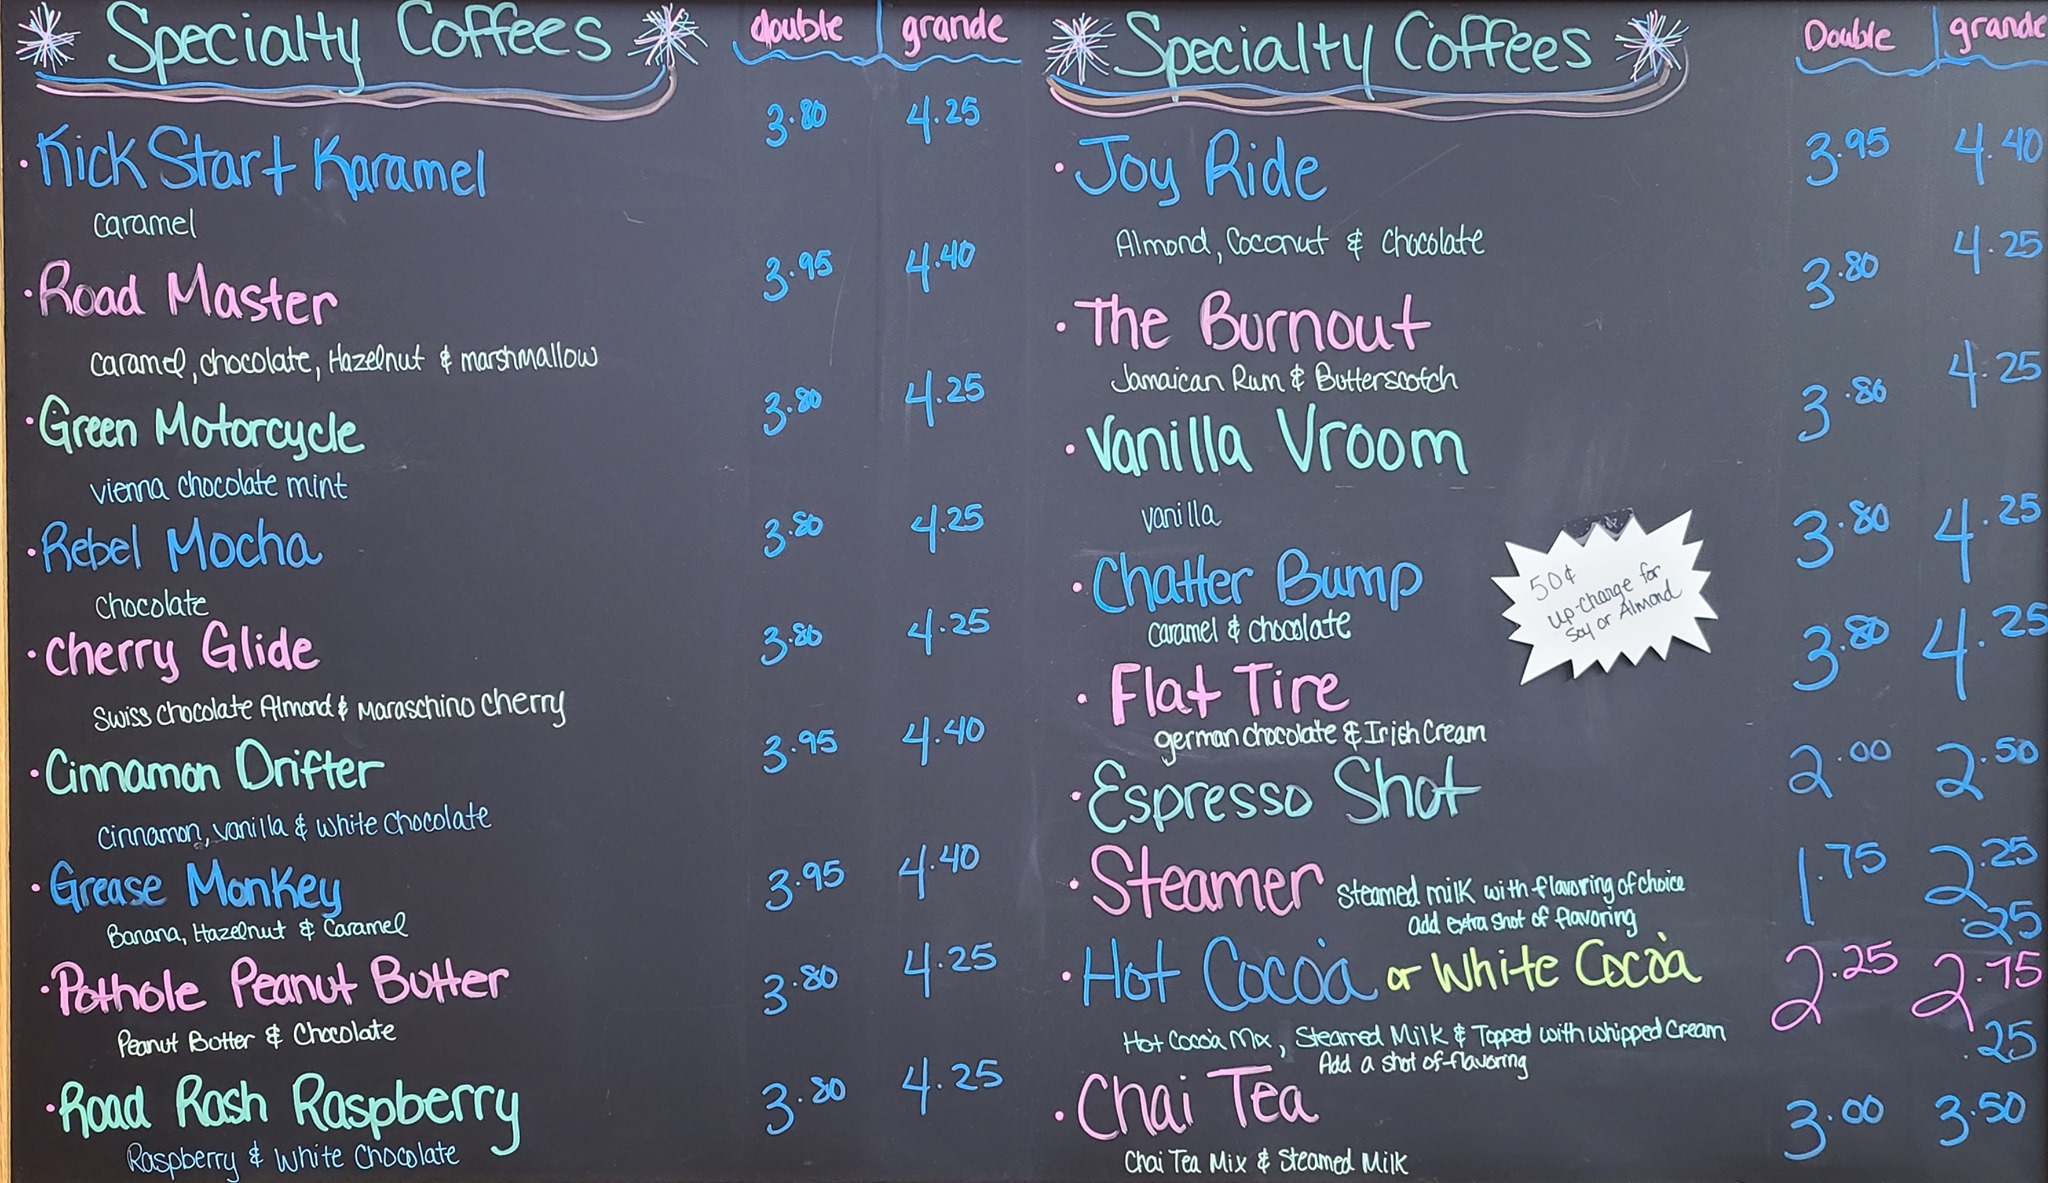 Specialty Coffees double grande
• Kick Start Karamel 3.80 4.25
caramel
• Road Master 3.95 4.40
caramel, chocolate, Hazelnut & marshmallow
• Green Motorcycle 3.80 4.25
vienna chocolate mint
• Rebel Mocha 3.80 4.25
chocolate
• Cherry Glide 3.80 4.25
Swiss chocolate Almond & Maraschino cherry
• Cinnamon Drifter 3.95 4.40
Cinnamon, vanilla & white chocolate
• Grease Monkey 3.95 4.40
Banana, Hazelnut & Caramel
• Pothole Peanut Butter 3.80 4.25
Peanut Butter & Chocolate
• Road Rash Raspberry 3.80 4.25
Raspberry & White Chocolate
Specialty Coffees Double grande
• Joy Ride 3.95 4.40
Almond, Coconut & Chocolate
• The Burnout 3.80 4.25
Jamaican Rum & Butterscotch
• Vanilla Vroom 3.80 4.25
vanilla
• Chatter Bump 3.80 4.25
Caramel & chocolate
50¢
up-charge for
Soy or Almond
• Flat Tire 3.80 4.25
german chocolate & Irish Cream
• Espresso Shot 2.00 2.50
• Steamer Steamed milk with flavoring of choice 1.75 2.25
Add extra shot of flavoring .25
• Hot Cocoa or White Cocoa 2.25 2.75
Hot Cocoa Mix, Steamed Milk & Topped with whipped Cream
Add a shot of flavoring .25
• Chai Tea 3.00 3.50
Chai Tea Mix & Steamed Milk